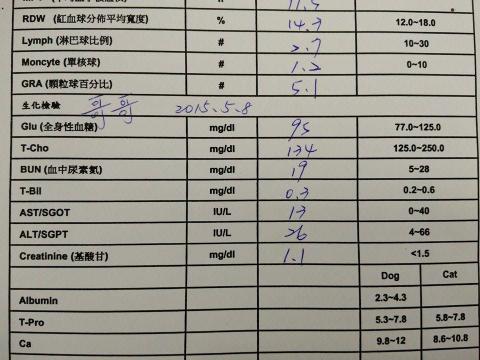 RDW (紅血球分佈平均寬度) % 14.7 12.0~18.0
Lymph (淋巴球比例) # 2.7 10~30
Moncyte (單核球) # 1.2 0~10
GRA (顆粒球百分比) # 5.1
生化檢驗 哥哥 2015.5.8
Glu (全身性血糖) mg/dl 95 77.0~125.0
T-Cho mg/dl 134 125.0~250.0
BUN (血中尿素氮) mg/dl 19 5~28
T-Bil mg/dl 0.3 0.2~0.6
AST/SGOT IU/L 13 0~40
ALT/SGPT IU/L 26 4~66
Creatinine (基酸甘) mg/dl 1.1 <1.5
Dog Cat
Albumin 2.3~4.3
T-Pro 5.3~7.8 5.8~7.8
Ca 9.8~12 8.6~10.8